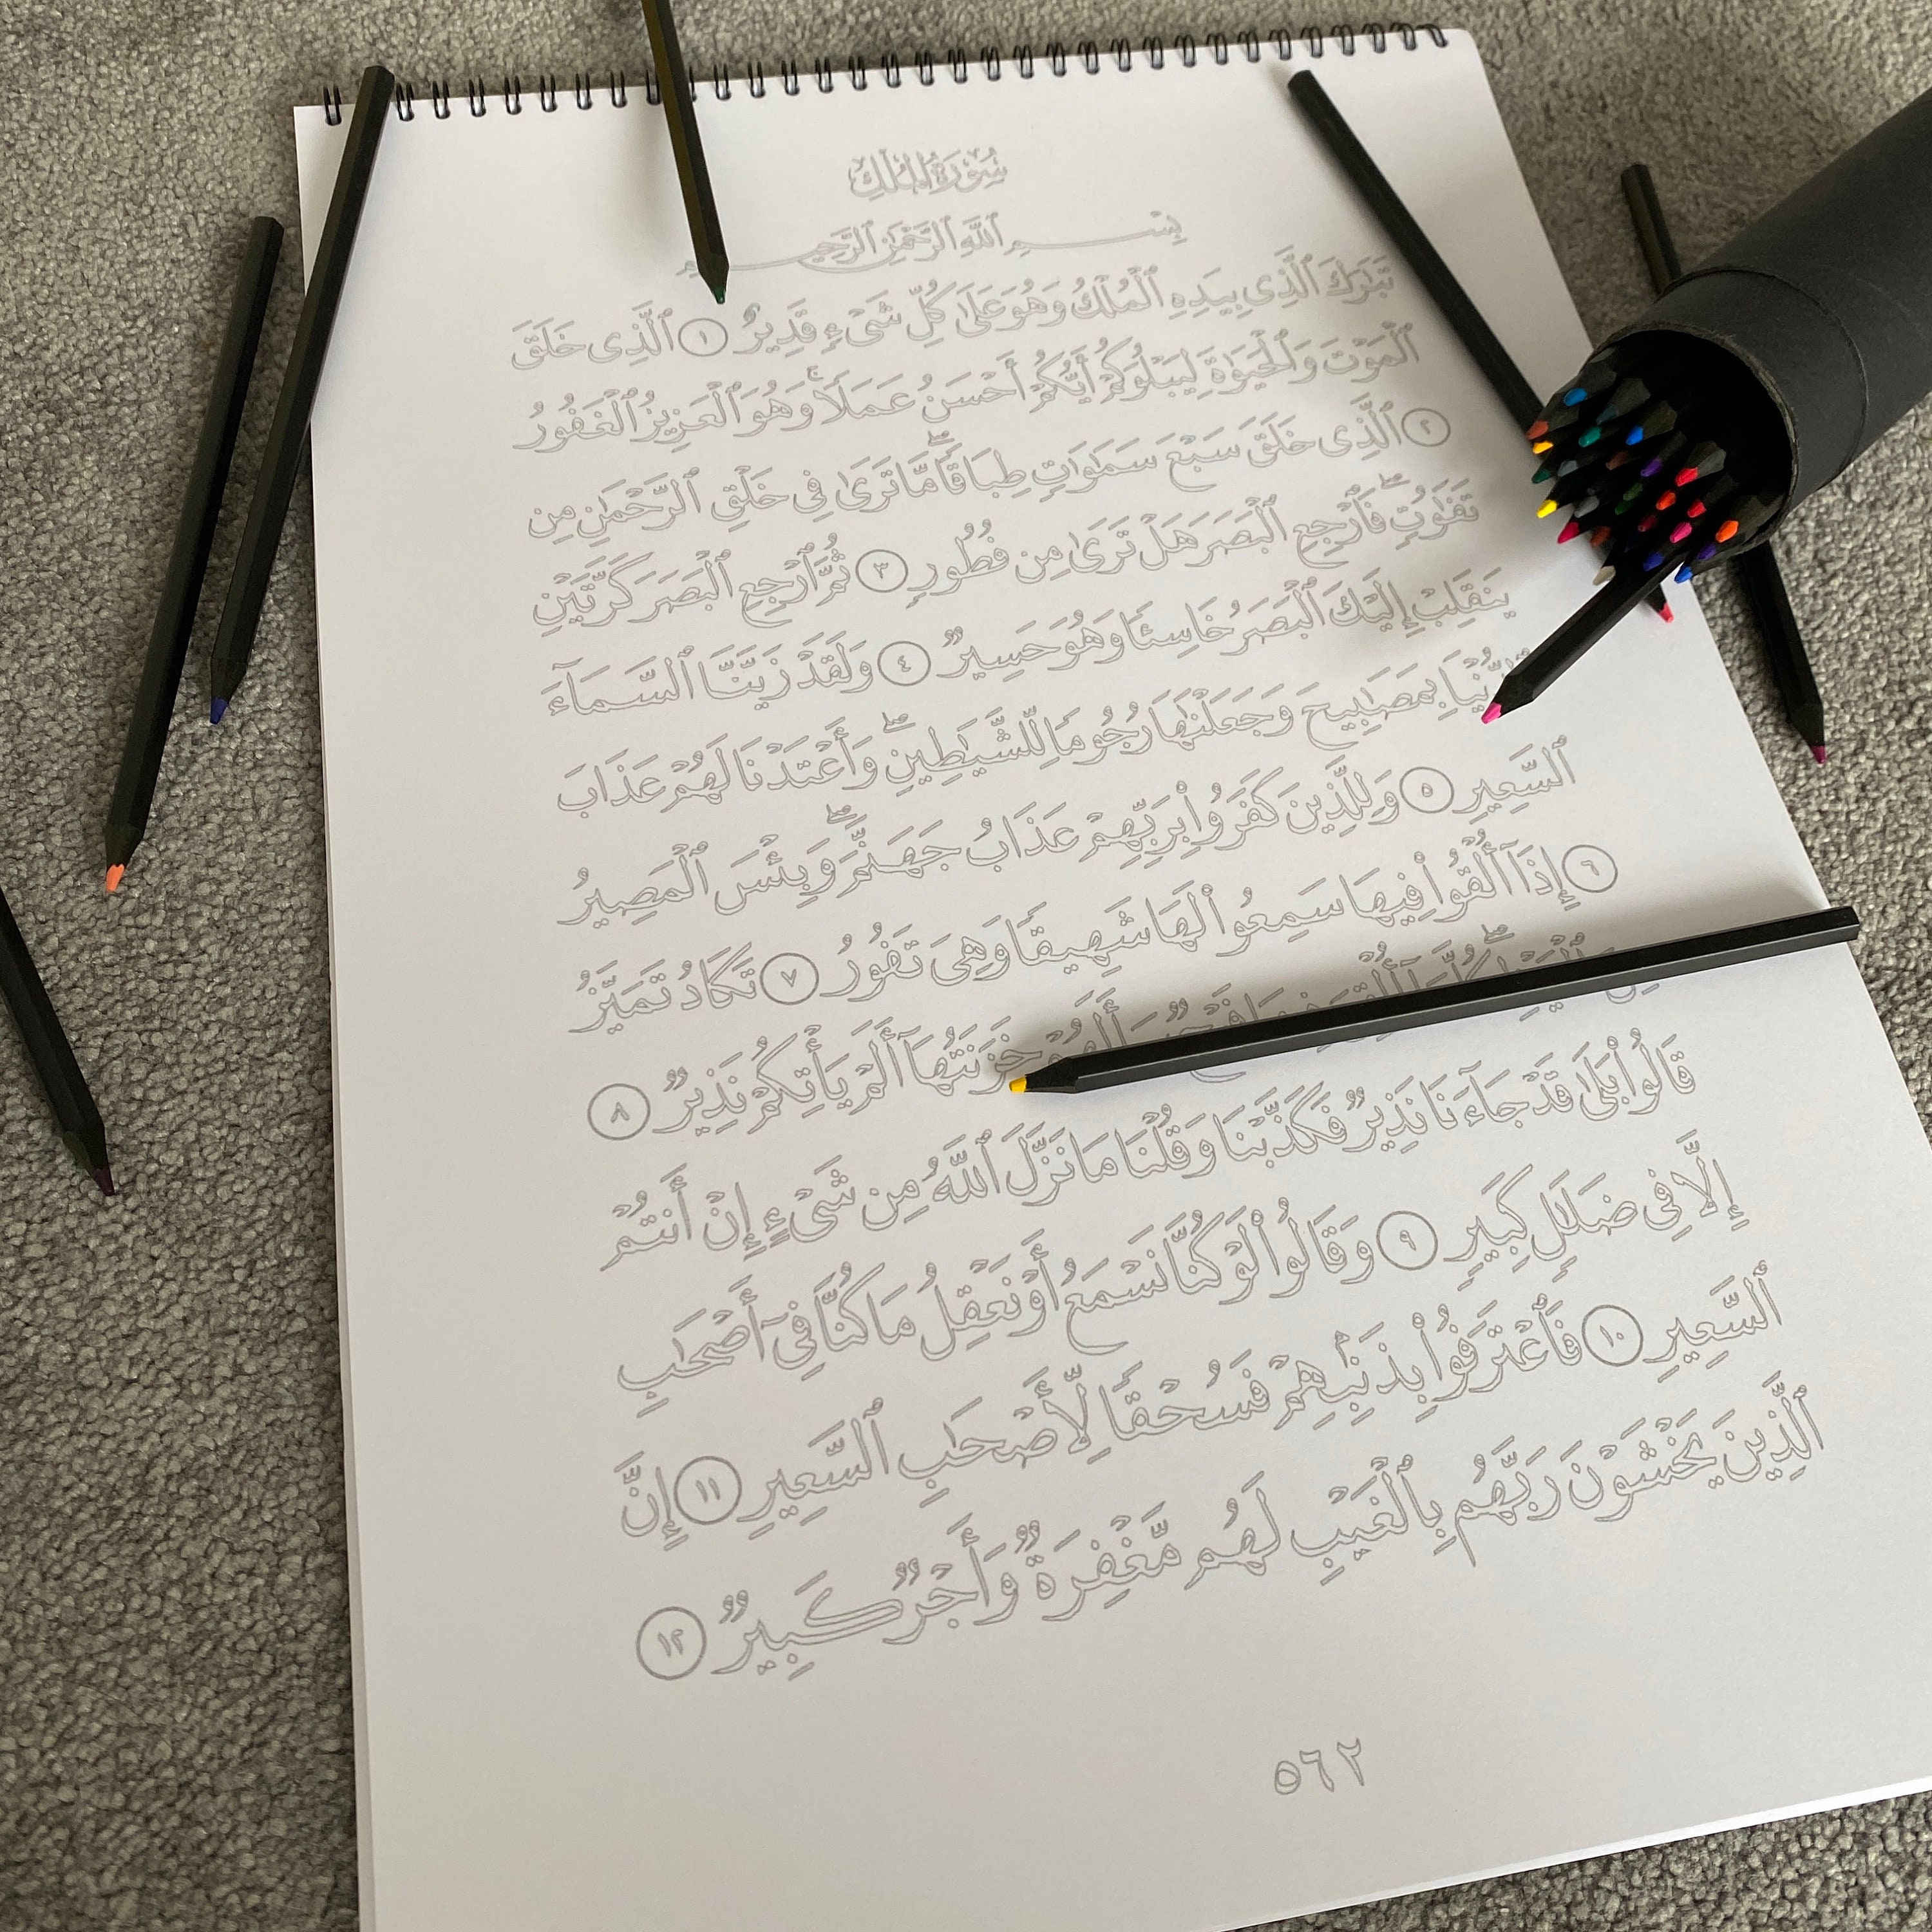 سُورَةُ ٱلْمُلْكِ
بِسْمِ ٱللَّهِ ٱلرَّحْمَٰنِ ٱلرَّحِيمِ
تَبَٰرَكَ ٱلَّذِى بِيَدِهِ ٱلْمُلْكُ وَهُوَ عَلَىٰ كُلِّ شَىْءٍ قَدِيرٌ ١ ٱلَّذِى خَلَقَ
ٱلْمَوْتَ وَٱلْحَيَوٰةَ لِيَبْلُوَكُمْ أَيُّكُمْ أَحْسَنُ عَمَلًا ۚ وَهُوَ ٱلْعَزِيزُ ٱلْغَفُورُ
٢ ٱلَّذِى خَلَقَ سَبْعَ سَمَٰوَٰتٍ طِبَاقًا ۖ مَّا تَرَىٰ فِى خَلْقِ ٱلرَّحْمَٰنِ مِن
تَفَٰوُتٍ ۖ فَٱرْجِعِ ٱلْبَصَرَ هَلْ تَرَىٰ مِن فُطُورٍ ٣ ثُمَّ ٱرْجِعِ ٱلْبَصَرَ كَرَّتَيْنِ
يَنقَلِبْ إِلَيْكَ ٱلْبَصَرُ خَاسِئًا وَهُوَ حَسِيرٌ ٤ وَلَقَدْ زَيَّنَّا ٱلسَّمَآءَ
بِمَصَٰبِيحَ وَجَعَلْنَٰهَا رُجُومًا لِّلشَّيَٰطِينِ ۖ وَأَعْتَدْنَا لَهُمْ عَذَابَ
ٱلسَّعِيرِ ٥ وَلِلَّذِينَ كَفَرُوا۟ بِرَبِّهِمْ عَذَابُ جَهَنَّمَ ۖ وَبِئْسَ ٱلْمَصِيرُ
٦ إِذَآ أُلْقُوا۟ فِيهَا سَمِعُوا۟ لَهَا شَهِيقًا وَهِىَ تَفُورُ ٧ تَكَادُ تَمَيَّزُ
خَزَنَتُهَآ أَلَمْ يَأْتِكُمْ نَذِيرٌ ٨
قَالُوا۟ بَلَىٰ قَدْ جَآءَنَا نَذِيرٌ فَكَذَّبْنَا وَقُلْنَا مَا نَزَّلَ ٱللَّهُ مِن شَىْءٍ إِنْ أَنتُمْ
إِلَّا فِى ضَلَٰلٍ كَبِيرٍ ٩ وَقَالُوا۟ لَوْ كُنَّا نَسْمَعُ أَوْ نَعْقِلُ مَا كُنَّا فِىٓ أَصْحَٰبِ
ٱلسَّعِيرِ ١٠ فَٱعْتَرَفُوا۟ بِذَنۢبِهِمْ فَسُحْقًا لِّأَصْحَٰبِ ٱلسَّعِيرِ ١١ إِنَّ
ٱلَّذِينَ يَخْشَوْنَ رَبَّهُم بِٱلْغَيْبِ لَهُم مَّغْفِرَةٌ وَأَجْرٌ كَبِيرٌ ١٢
٥٦٢